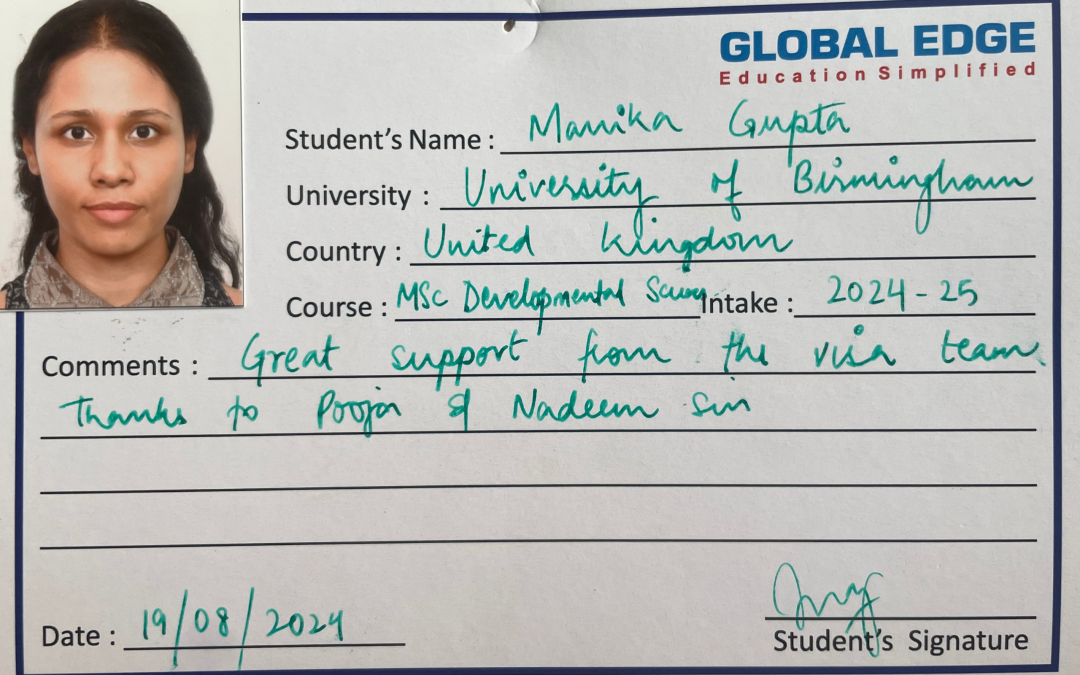 GLOBAL EDGE
Education Simplified
Student's Name : Manika Gupta
University : University of Birmingham
Country : United Kingdom
Course : MSc Developmental Intake : 2024-25
Comments : Great support from the visa team
Thanks to Pooja & Nadeem sir
Date : 19/08/2024
Student's Signature